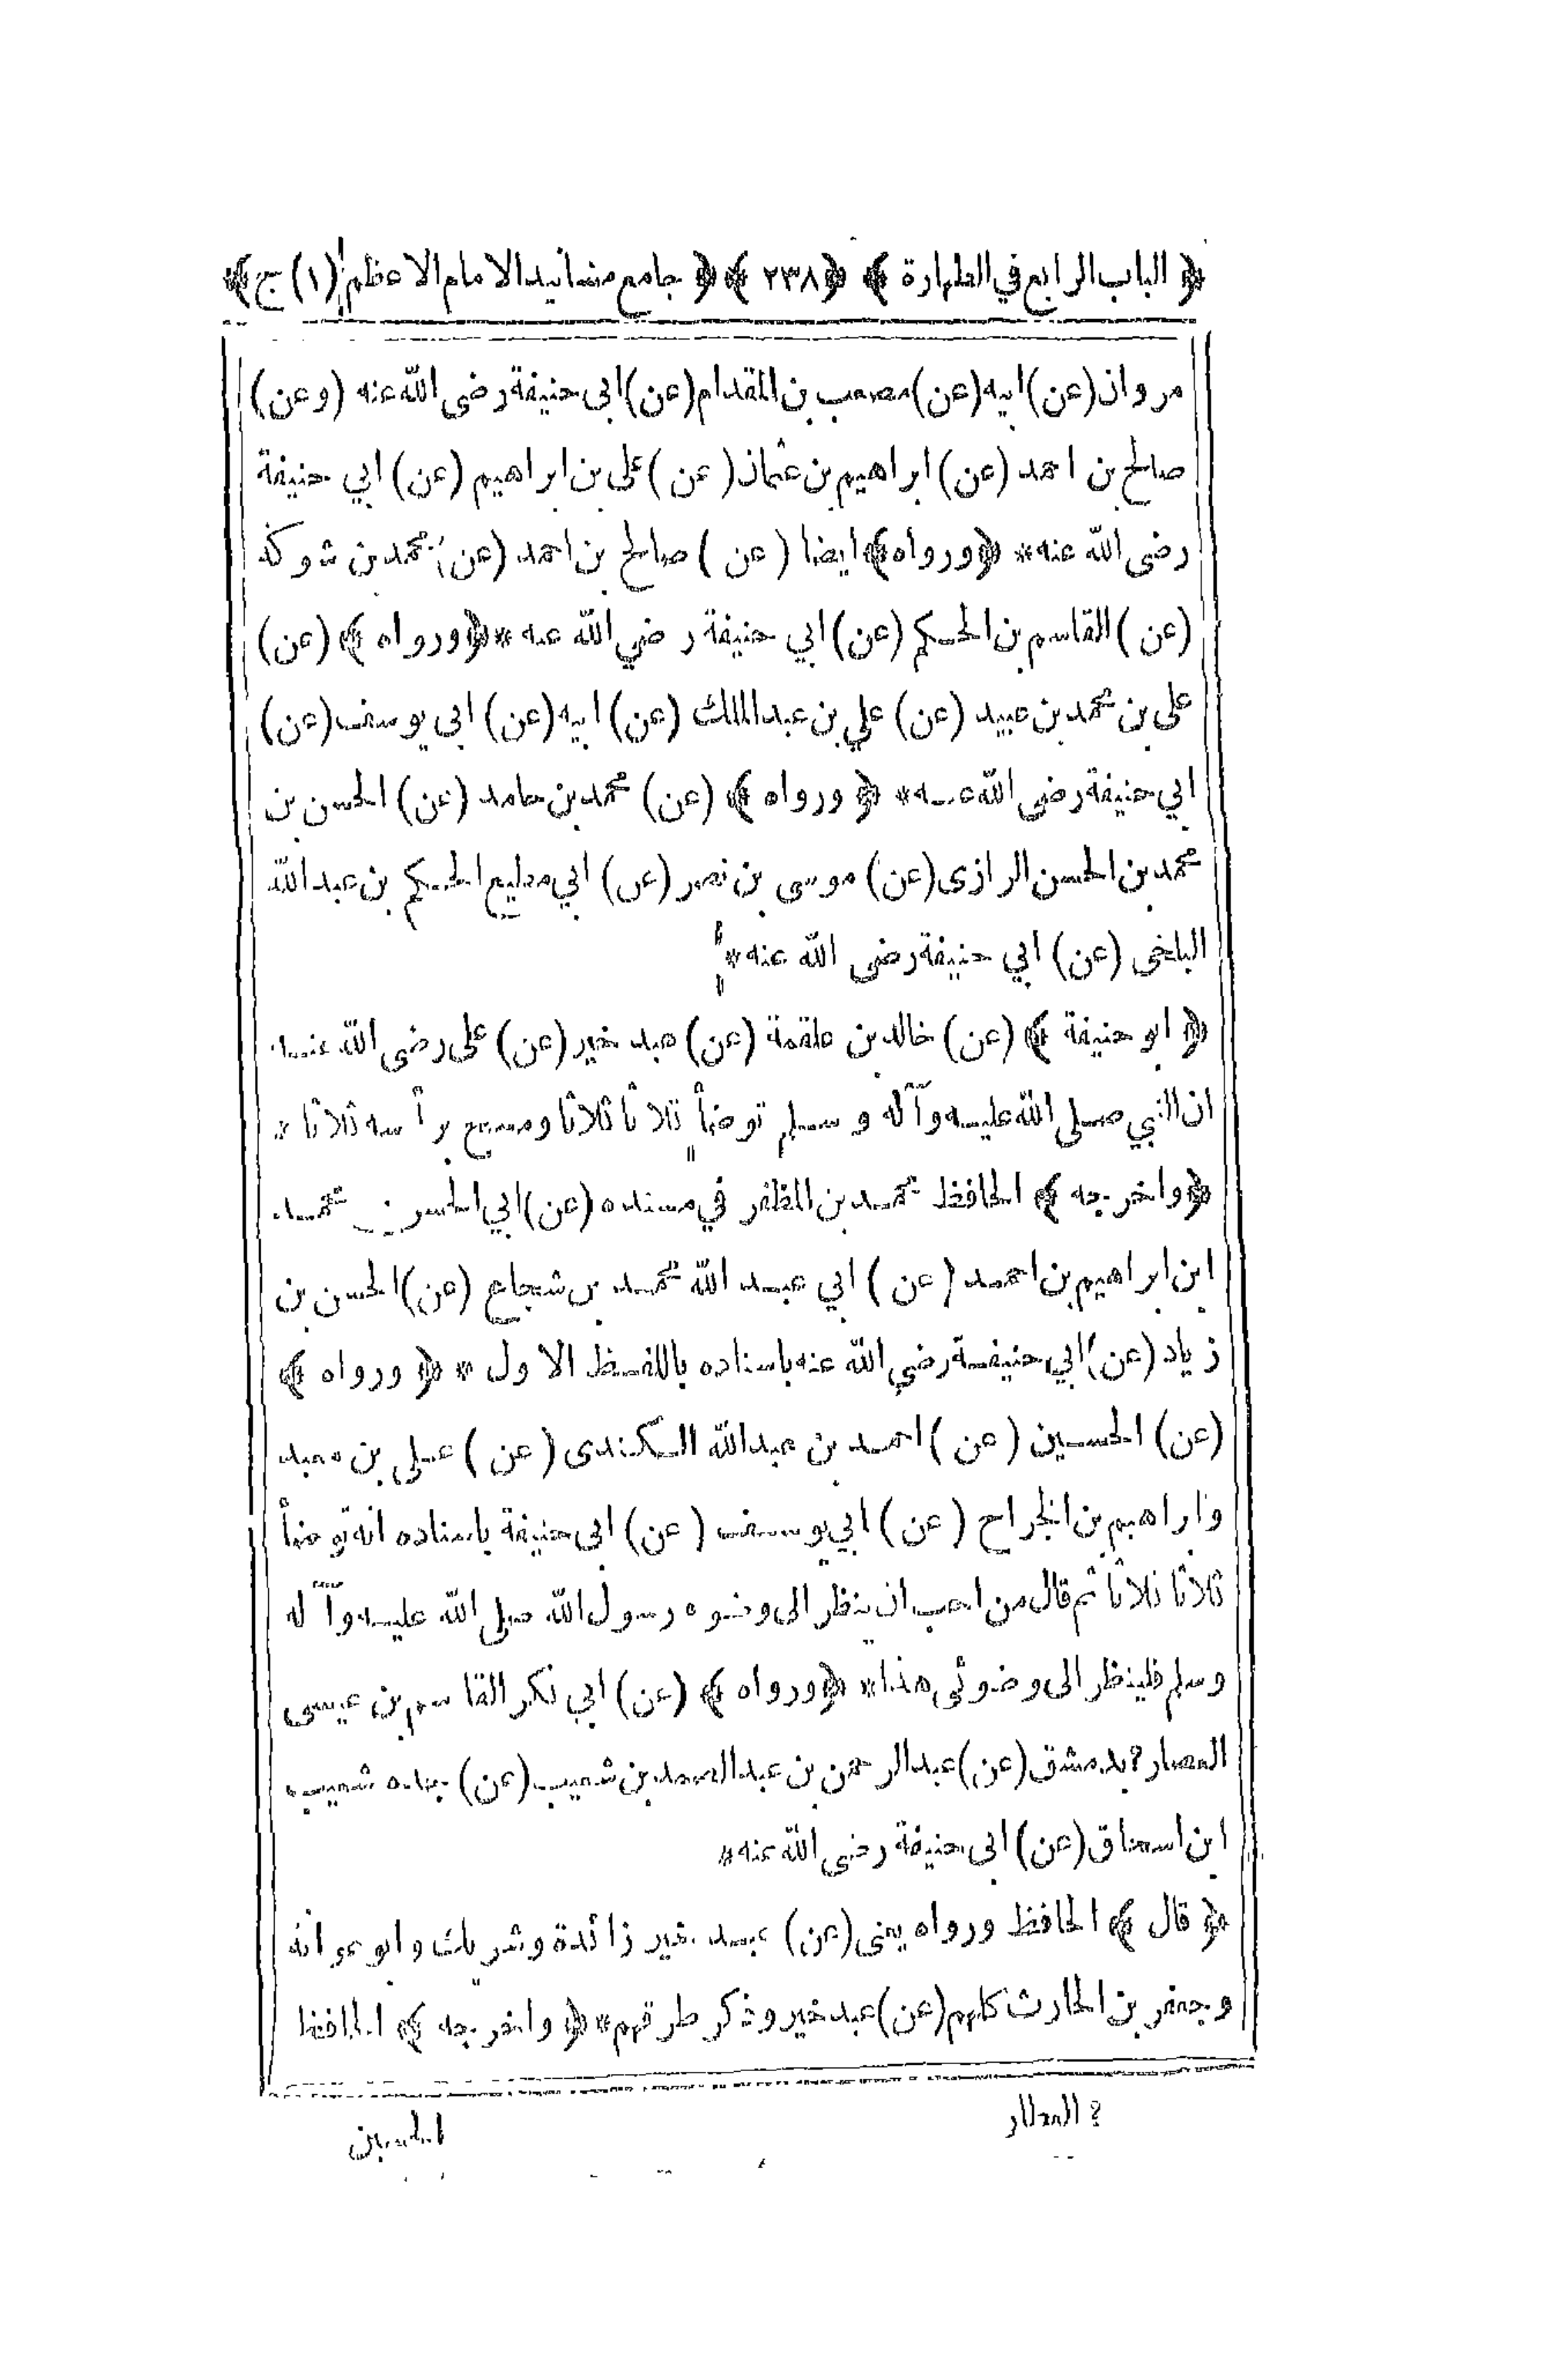 ﴿ الباب الرابع في الطهارة ﴾ ﴿٢٣٨ ﴾ ﴿ جامع مسانيد الامام الاعظم (١) ج﴾
مروان (عن) ابيه (عن) مصعب بن المقدام (عن) ابى حنيفة رضى الله عنه (وعن)
صالح بن احمد (عن) ابراهيم بن عثمان (عن) على بن ابراهيم (عن) ابي حنيفة
رضى الله عنه * ﴿ورواه﴾ ايضا (عن) صالح بن احمد (عن) محمد بن شوكة
(عن) القاسم بن الحكم (عن) ابي حنيفة رضي الله عنه * ﴿ورواه ﴾ (عن)
على بن محمد بن عبيد (عن) علي بن عبد الملك (عن) ابيه (عن) ابى يوسف (عن)
ابي حنيفة رضى الله عنه * ﴿ ورواه ﴾ (عن) محمد بن حامد (عن) الحسن بن
محمد بن الحسن الرازى (عن) موسى بن نصر (عن) ابي مطيع الحكم بن عبد الله
البلخى (عن) ابي حنيفة رضى الله عنه *
﴿ ابو حنيفة ﴾ (عن) خالد بن علقمة (عن) عبد خير (عن) على رضى الله عنه
ان النبي صلى الله عليه وآله وسلم توضأ ثلاثا ثلاثا ومسح برأسه ثلاثا *
﴿واخرجه ﴾ الحافظ محمد بن المظفر في مسنده (عن) ابي الحسن محمد
ابن ابراهيم بن احمد (عن) ابي عبد الله محمد بن شجاع (عن) الحسن بن
زياد (عن) ابي حنيفة رضي الله عنه باسناده باللفظ الاول * ﴿ ورواه ﴾
(عن) الحسين (عن) احمد بن عبد الله الكندى (عن) على بن معبد
وابراهيم بن الجراح (عن) ابي يوسف (عن) ابى حنيفة باسناده انه توضأ
ثلاثا ثلاثا ثم قال من احب ان ينظر الى وضوء رسول الله صلى الله عليه وآله
وسلم فلينظر الى وضوئى هذا * ﴿ورواه ﴾ (عن) ابي بكر القاسم بن عيسى
العصار ? بدمشق (عن) عبد الرحمن بن عبد الصمد بن شعيب (عن) جده شعيب
ابن اسحاق (عن) ابى حنيفة رضى الله عنه *
﴿ قال ﴾ الحافظ ورواه يعنى (عن) عبد خير زائدة وشريك وابو عوانة
وجعفر بن الحارث كلهم (عن) عبد خير وذكر طرقهم * ﴿ واخرجه ﴾ الحافظ
? العطار
الحسين